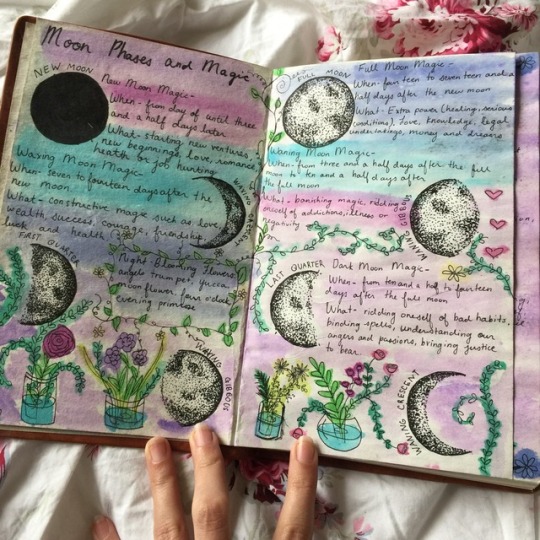 Moon Phases and Magic
NEW MOON
New Moon Magic -
When - from day of until three
and a half days later
What - starting new ventures,
new beginnings, love, romance,
health or job hunting
Waxing Moon Magic -
When - seven to fourteen days after the
new moon
What - constructive magic such as love,
wealth, success, courage, friendship,
luck and health
FIRST QUARTER
Night Blooming Flowers:
angels trumpet, yucca,
moon flower, four o'clock,
evening primrose
WAXING GIBBOUS
FULL MOON
Full Moon Magic -
When - fourteen to seventeen and a
half days after the new moon
What - Extra power (healing, serious
conditions), love, knowledge, legal
undertakings, money and dreams
Waning Moon Magic -
When - from three and a half days after the full
moon to ten and a half days after
the full moon
What - banishing magic, ridding
oneself of addictions, illness or
negativity
WANING GIBBOUS
LAST QUARTER
Dark Moon Magic -
When - from ten and a half to fourteen
days after the full moon
What - ridding oneself of bad habits,
binding spells, understanding our
angers and passions, bringing justice
to bear.
WANING CRESCENT